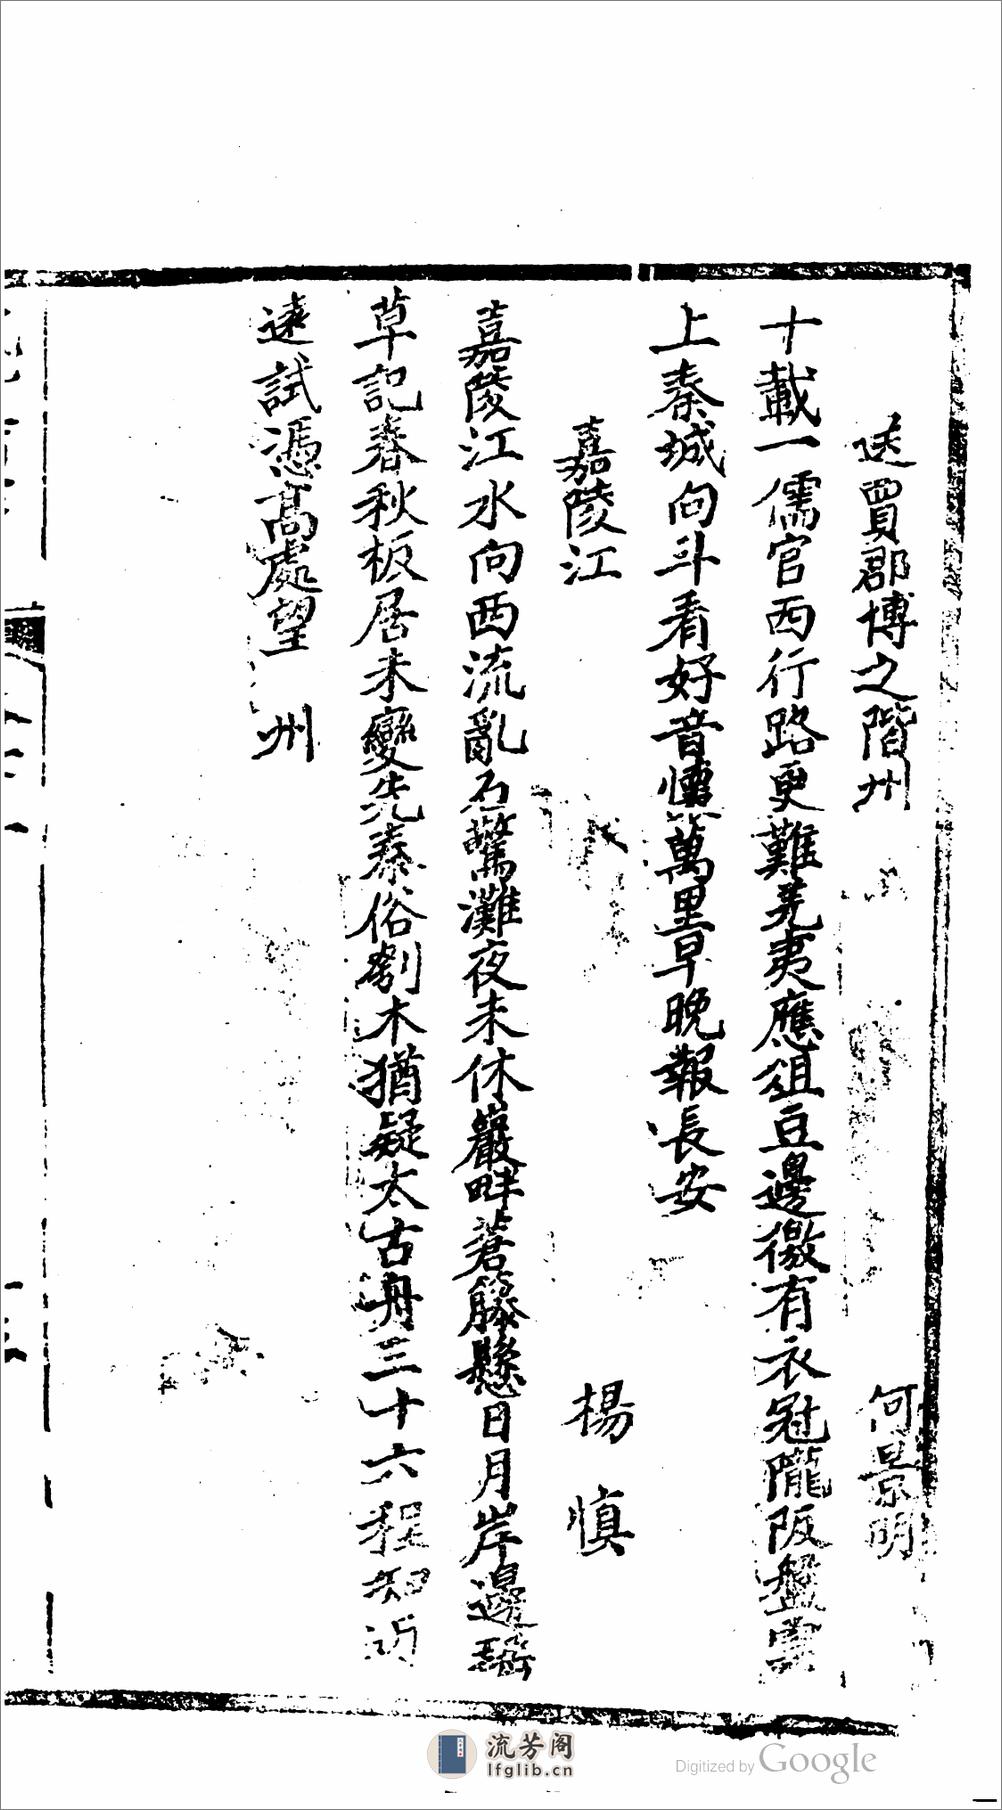 送賈郡博之階州 何景明
十載一儒官西行路更難羌夷應俎豆邊徼有衣冠隴阪盤雲
上秦城向斗看好音懷萬里早晚報長安
嘉陵江 楊慎
嘉陵江水向西流亂石驚灘夜未休巖畔蒼藤懸日月岸邊瑤
草記春秋板居未變先秦俗刳木猶疑太古舟三十六程知近
遠試憑高處望 州
流芳阁
lfglib.cn
Digitized by Google